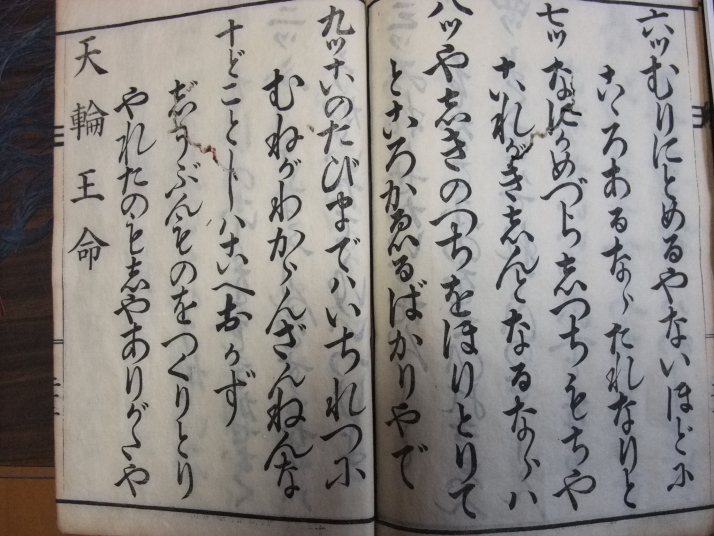 六ッむりにとめるやないほどに
こゝろあるなゝたれなりと
七ッなにかめづらしつちもちや
これがきしんとなるならハ
八ッやしきのつちをほりとりて
ところかゑるばかりやで
九ッこのたびまでハいちれつに
むねがわからんざんねんな
十ドことしハこへおかず
じうぶんものをつくりとり
やれたのもしやありがたや
天輪王命